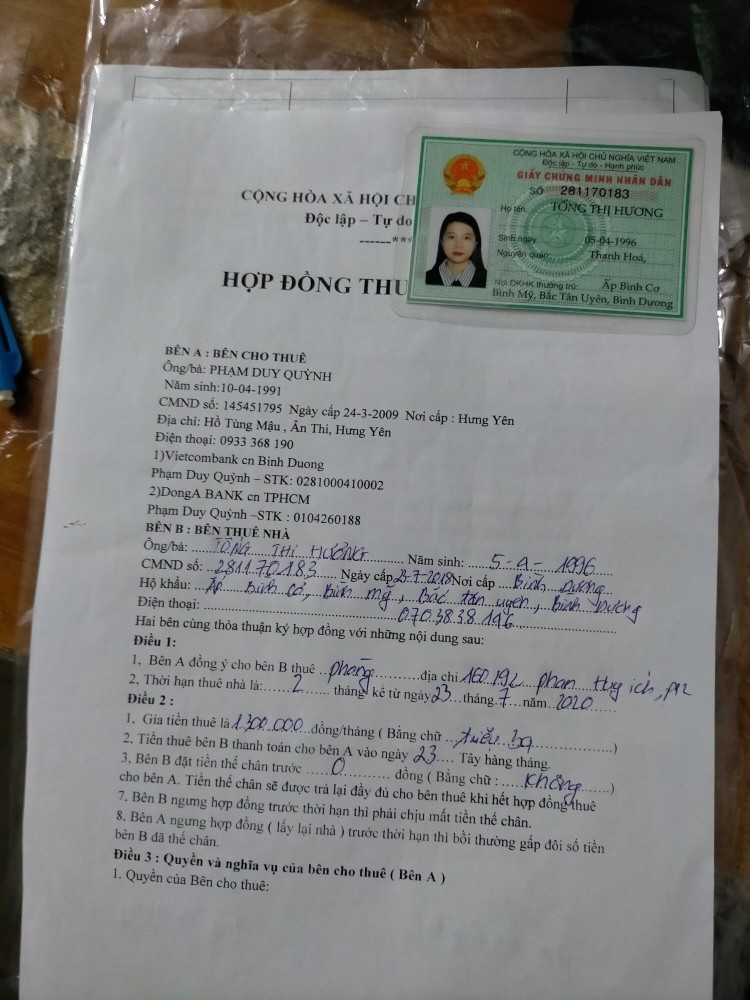 CỘNG HÒA XÃ HỘI CHỦ NGHĨA VIỆT NAM
Độc lập - Tự do - Hạnh phúc
GIẤY CHỨNG MINH NHÂN DÂN
SỐ 281170183
Họ tên: TỐNG THỊ HƯƠNG
Sinh ngày 05-04-1996
Nguyên quán: Thanh Hoá,
Nơi ĐKHK thường trú: Ấp Bình Cơ
Bình Mỹ, Bắc Tân Uyên, Bình Dương
CỘNG HÒA XÃ HỘI CH
Độc lập – Tự do
------***
HỢP ĐỒNG THU
BÊN A : BÊN CHO THUÊ
Ông/bà: PHẠM DUY QUỲNH
Năm sinh:10-04-1991
CMND số: 145451795 Ngày cấp 24-3-2009 Nơi cấp : Hưng Yên
Địa chỉ: Hồ Tùng Mậu , Ân Thi, Hưng Yên
Điện thoại: 0933 368 190
1)Vietcombank cn Binh Duong
Phạm Duy Quỳnh – STK: 0281000410002
2)DongA BANK cn TPHCM
Phạm Duy Quỳnh –STK : 0104260188
BÊN B : BÊN THUÊ NHÀ
Ông/bà: TỐNG THỊ HƯƠNG Năm sinh: 5-4-1996
CMND số: 281170183 Ngày cấp 23-7-2018 Nơi cấp Bình Dương
Hộ khẩu: Ấp Bình cơ, Bình mỹ, Bắc tân uyên, Bình Dương
Điện thoại: 070.38.38.196
Hai bên cùng thỏa thuận ký hợp đồng với những nội dung sau:
Điều 1:
1, Bên A đồng ý cho bên B thuê phòng địa chỉ 160.192 phan Huy ích,
2. Thời hạn thuê nhà là: 2 tháng kể từ ngày 23 tháng 7 năm 2020
Điều 2 :
1. Gía tiền thuê là 1.300.000 đồng/tháng ( Bằng chữ triệu ba )
2. Tiền thuê bên B thanh toán cho bên A vào ngày 23 Tây hàng tháng.
3. Bên B đặt tiền thế chân trước 0 đồng ( Bằng chữ : không )
cho bên A. Tiền thế chân sẽ được trả lại đầy đủ cho bên thuê khi hết hợp đồng thuê
7. Bên B ngưng hợp đồng trước thời hạn thì phải chịu mất tiền thế chân.
8. Bên A ngưng hợp đồng ( lấy lại nhà ) trước thời hạn thì bồi thường gấp đôi số tiền
bên B đã thế chân.
Điều 3 : Quyền và nghĩa vụ của bên cho thuê ( Bên A )
1. Quyền của Bên cho thuê: